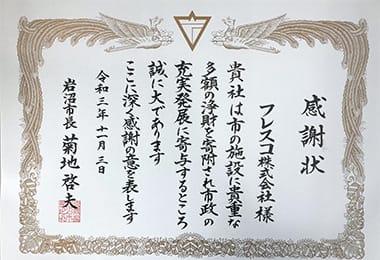 感謝状
フレスコ株式会社 様
貴社は市の施設に貴重な
多額の浄財を寄附され市政の
充実発展に寄与するところ
誠に大であります
ここに深く感謝の意を表します
令和三年十一月三日
岩沼市長 菊地啓夫